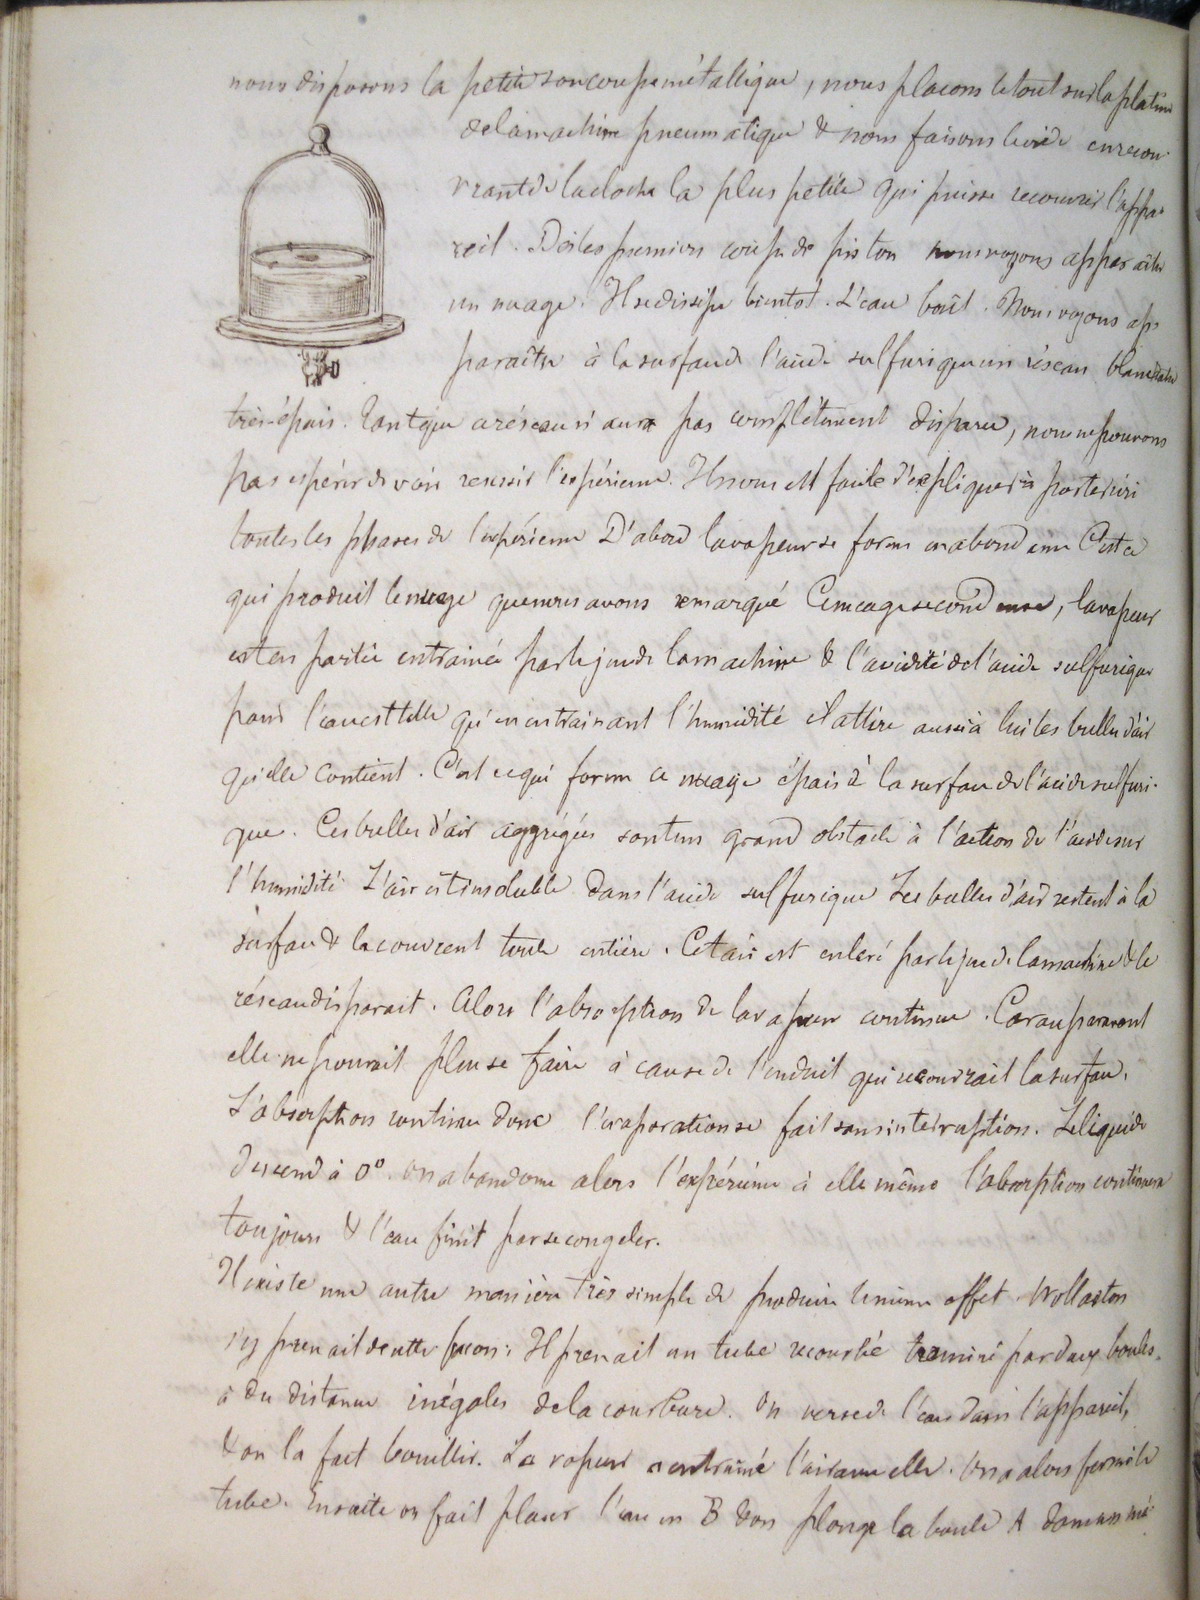 nous disposons la petite soucoupe métallique, nous plaçons le tout sur la platine
de la machine pneumatique & nous faisons le vide en recou-
vrant de la cloche la plus petite qui puisse recouvrir l'appa-
reil. Dès les premiers coups de piston nous voyons apparaître
un nuage. Il se dissipe bientôt. L'eau bout. Nous voyons ap-
paraître à la surface de l'acide sulfurique un réseau blanchâtre
très-épais. Tant que ce réseau n'aura pas complètement disparu, nous ne pouvons
pas espérer de voir réussir l'expérience. Il nous est facile d'expliquer à posteriori
toutes les phases de l'expérience D'abord la vapeur se forme en abondance C'est ce
qui produit le nuage que nous avons remarqué Ce nuage se condense, la vapeur
est en partie entrainée par le jeu de la machine & l'avidité de l'acide sulfurique
pour l'eau est telle qu'en entrainant l'humidité il attire aussi à lui les bulles d'air
qu'elle contient. C'est ce qui forme ce nuage épais à la surface de l'acide sulfuri-
que. Ces bulles d'air aggrégées sont un grand obstacle à l'action de l'acide sur
l'humidité L'air est insoluble dans l'acide sulfurique Les bulles d'air restent à la
surface & la couvrent toute entière. Cet air est enlevé par le jeu de la machine & le
réseau disparait. Alors l'absorption de la vapeur continue. Car auparavant
elle ne pouvait plus se faire à cause de l'enduit qui recouvrait la surface.
L'absorption continue donc l'évaporation se fait sans interruption. Le liquide
descend à 0°. On abandonne alors l'expérience à elle même l'absorption continuera
toujours & l'eau finit par se congeler.
Il existe une autre manière très simple de produire le même effet. Wollaston
s'y prenait de cette façon: Il prenait un tube recourbé terminé par deux boules.
à des distances inégales de la courbure. On verse de l'eau dans l'appareil,
& on la fait bouillir. La vapeur a entrainé l'air avec elle. On a alors fermé le
tube. Ensuite on fait placer l'eau en B & on plonge la boule A dans un mé-